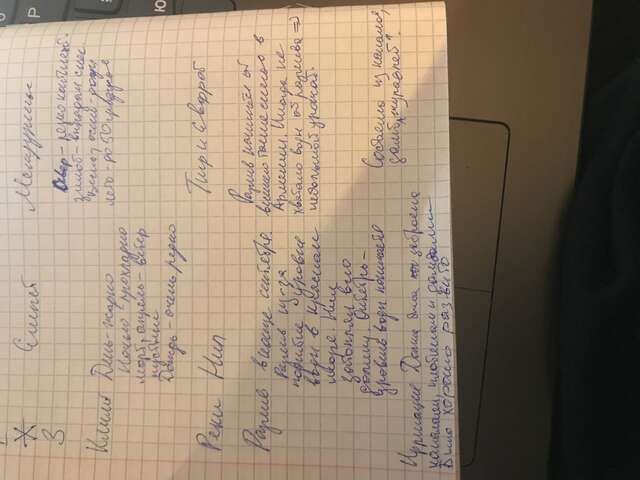 Египет
3
Север - резко континент.
зимой - выпадал снег
Климат День - жарко
весна, осень - дожди
Ночью прохладно
лето - до 50 градусов
март, апрель - ветер
пустыни
Дождь - очень редко
Реки Нил
Тигр и Евфрат
Разлив в конце сентября.
Разлив начинается от
Разлив из-за
таяние снегов в
поднятие уровня
Армении. Иногда не
воды в Красном
хватало воды от разлива =>
море. Нил
небольшой урожай.
затоплял всю
долину. Октябрь -
уровень воды
Состояла из каналов,
Ирригация Долина была
каналами, плотинами и дамбами
Было хорошо развито